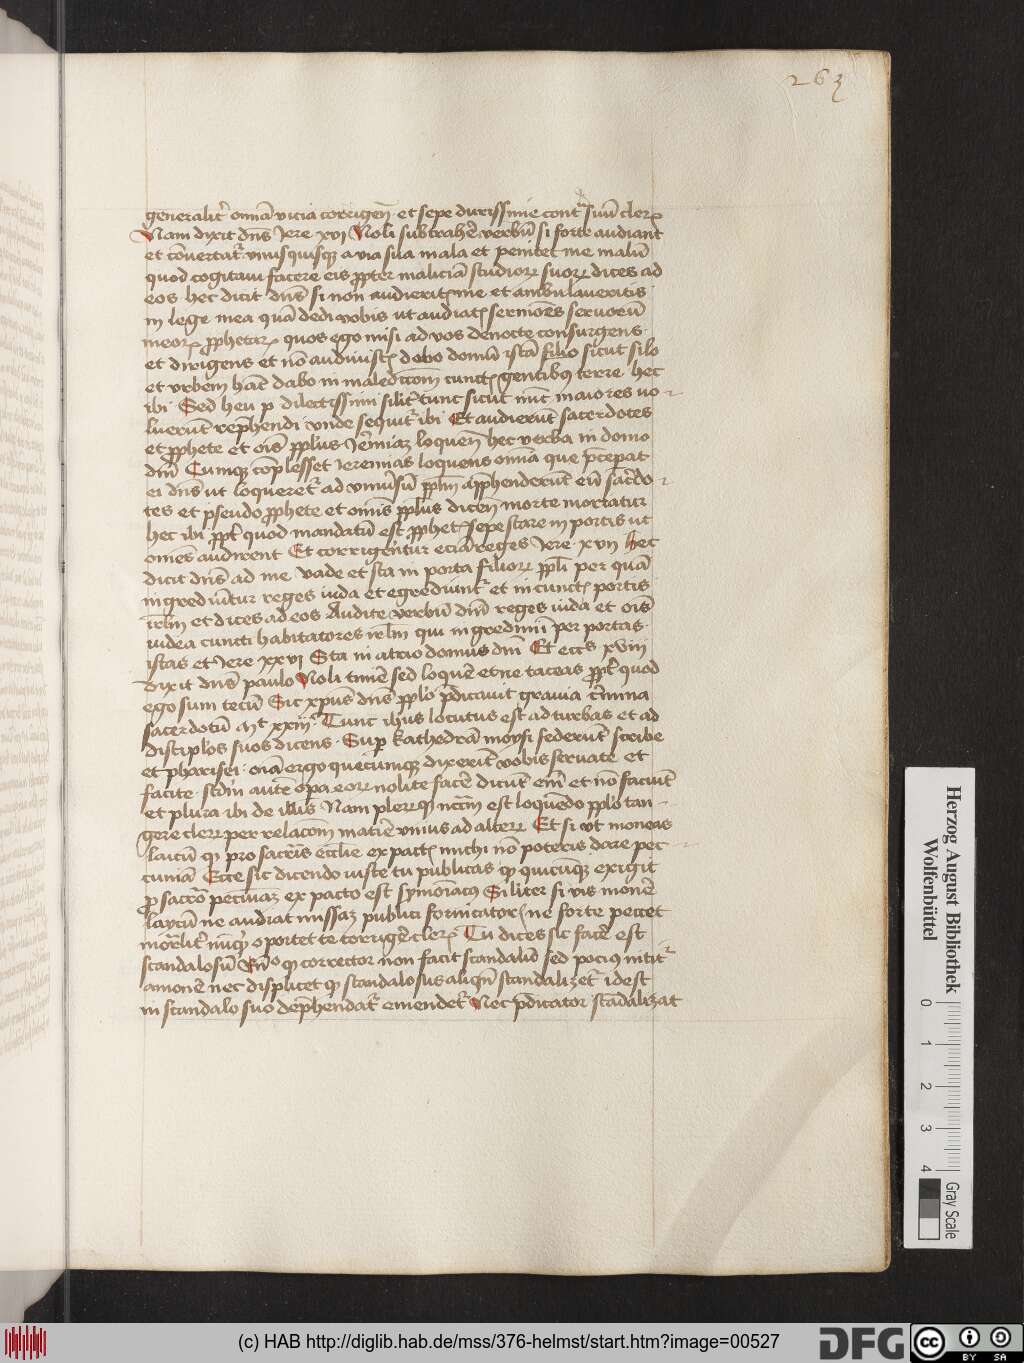 263
generalit᷑ oīma vicia corrigeñ · et sepe durissime cont᷑ suū cleꝝ
Nam dixit dn̄s Jere xvj Noli subtrahe᷑ verbū si forte audiant
et cōvertat᷑ vnusquisqꝫ a via sua mala et penitet me malū
quod cogitavi facere eis ꝓpter maliciā studioꝝ suoꝝ dices ad
eos hec dicit dn̄s si non audierit᷑ me et ambulaveritis
in lege mea quā dedi vobis ut audiat᷑ sermōes servorū
meoꝝ ꝓphetaꝝ quos ego misi ad vos de nocte consurgens ·
et dirigens et nō audivist᷑ dabo domū istā silio sicut silo
et vrbem hāc dabo in maledictōm cunct᷑ gentibꝰ terre hec
ibi · Sed heu p dilectissimi silit᷑ tunc sicut nūc maiores vo-
luerūt rep̄hendi vnde sequit᷑ ibi Et audierūt sacerdotes
et ꝓphete et oīs ppl̄us Je᷑miaꝫ loqueñ hec verba in domo
dn̄i Cumqꝫ cōplesset Jeremias loquens oīma que p̄cepat
ei dn̄s ut loqueret᷑ ad vniv᷑sū ppl̄m app̄henderūt eū sac᷑do-
tes et pseudo ꝓphete et omīs ppl̄us diceñ morte moriatur
hec ibi ꝓpt᷑ quod mandatū est ꝓphet᷑ sepe stare in portis ut
omēs audirent Et corrigentur eciā reges Jere · xvij hec
dicit dn̄s ad me vade et sta in porta filioꝝ ppl̄i per quā
ingrediūtur reges iuda et egrediunt᷑ et in cunct᷑ portis
irl̄m et dices ad eos Audite verbū dn̄i reges iuda et oīs
iudea cuncti habitatores irl̄m qui ingredimī per portas ·
istas et Jere xxvj Sta in atrio domus dn̄i Et eccs xviij
dixit dn̄s paulo Noli timē sed loquē et ne taceas ꝓpt᷑ quod
ego sum tecū Sic xp̄us dn̄s ppl̄o p̄dicavit gravia c᷑mina
sacerdotū Mt xxiij° Tunc ihūs locutus est ad turbas et ad
discipl̄os suos dicens · Sup kathedrā moysi sederūt scribe
et pharisei · oīa ergo quecumqꝫ dixerīt vobis servate et
facite scd̄m autē opa eoꝝ nolite facē dicūt em̄ et nō faciūt
et plura ibi de illis Nam pleꝝqꝫ nccm̄ est loquēdo ppl̄o tan-
gere cleꝝ per relacōm matie᷑ vnius ad alteꝝ Et si vt moneas
laicū qꝫ pro sacris eccl̄ie ex pact᷑ michi nō poteris dare pec-
cuniā Ecce sic dicendo iuste tu publicas qꝫ quicūqꝫ exigit
ꝓ sac᷑o pecuniaꝫ ex pacto est symoniacꝰ Siliter si vis monē
laycū ne audiat missaꝫ publici fornicator᷑ ne forte peccet
mor᷑lit᷑ nūqꝫ oportet te corrige᷑ cleꝝ Tu dices sic facē est
scandalosū Rn̄° qꝫ corrector non facit scandalū sed pocius intit᷑
amonē nec displicet qꝫ scandalosus aliqn̄ scandalizet᷑ idest
in scandalo suo dep̄hendat᷑ emendet᷑ Nec p̄dicator scandalizat
Herzog August Bibliothek
Wolfenbüttel
0 1 2 3 4
Gray Scale
(c) HAB http://diglib.hab.de/mss/376-helmst/start.htm?image=00527
DFG
cc BY SA